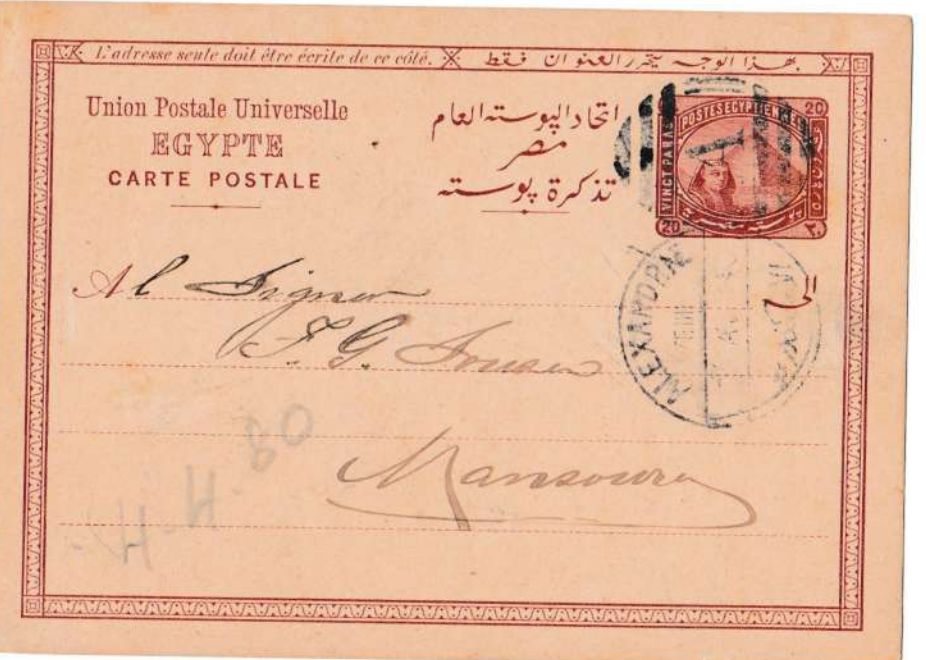 L'adresse seule doit être écrite de ce côté. بهذا الوجه يتحرر العنوان فقط
Union Postale Universelle
EGYPTE
CARTE POSTALE
اتحاد البوسته العام
مصر
تذكرة پوسته
POSTES EGYPTIENNES
VINGT PARAS
20
20
٢٠
1
ALEXANDRIE
Al Signor
J. G.
Mansoura
H-H-80